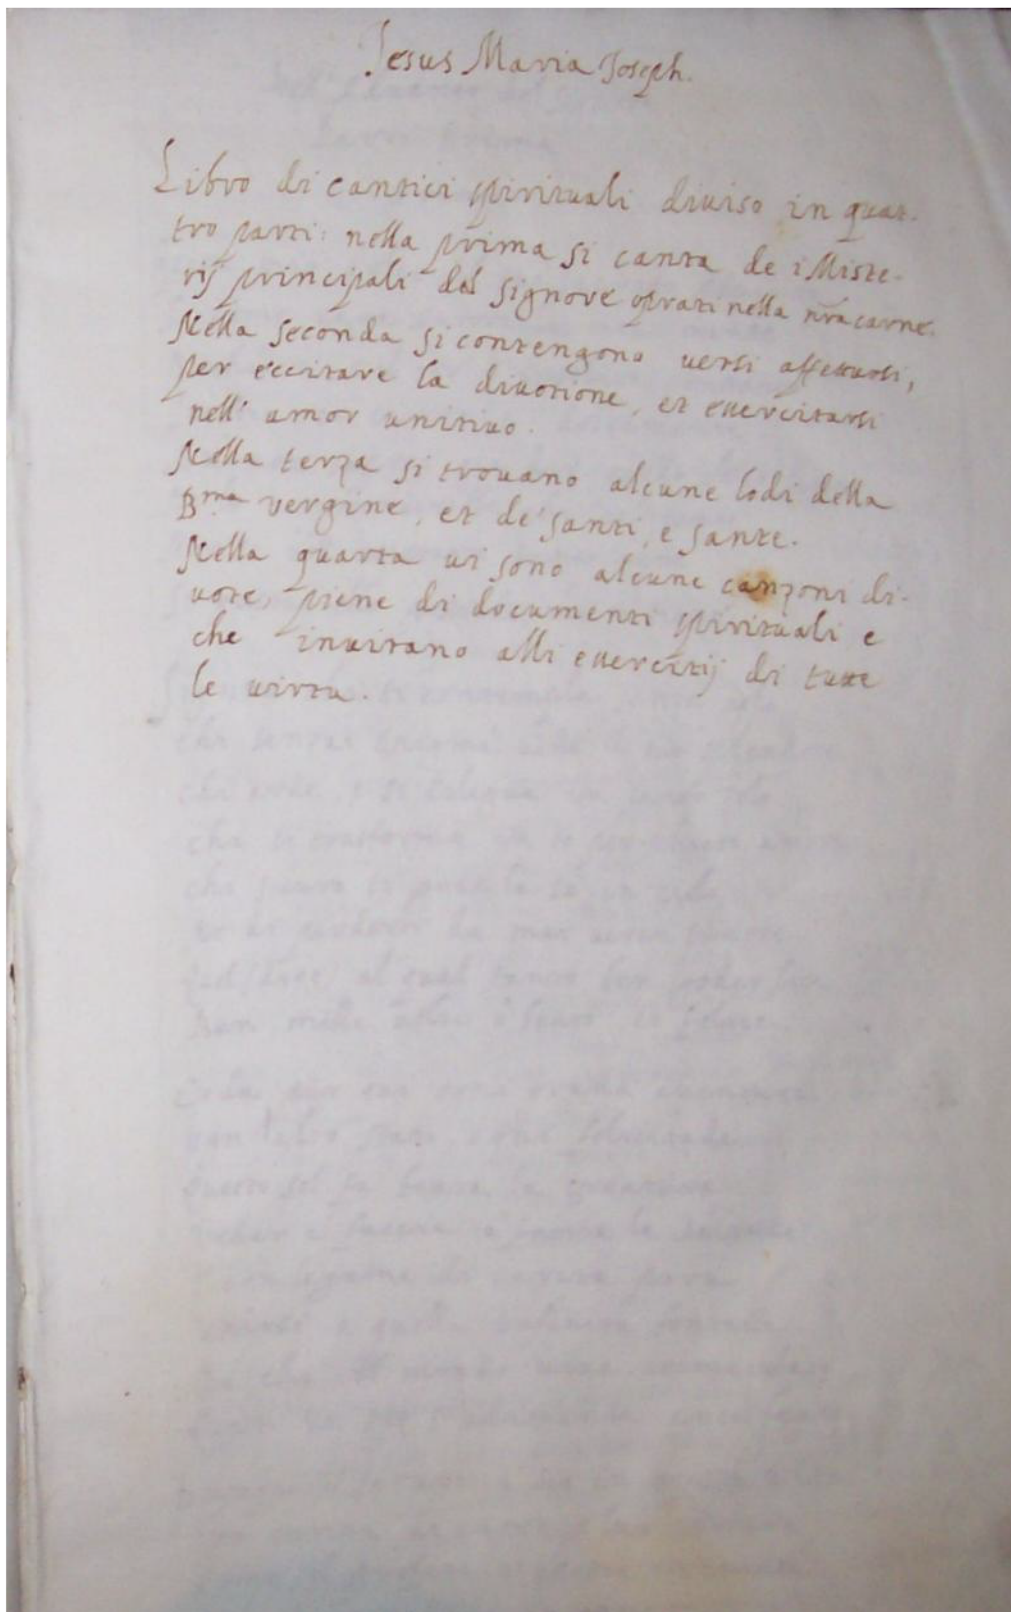 Jesus Maria Joseph.
Libro di cantici spirituali diuiso in quat-
tro parti: nella prima si canta de i Miste-
rij principali del Signore oprati nella nra carne.
Nella seconda si contengono uersi affettuosi,
per eccitare la diuotione, et essercitarsi
nell' amor unitiuo.
Nella terza si trouano alcune lodi della
B.ma vergine, et de' santi, e sante.
Nella quarta ui sono alcune canzoni di-
uote, piene di documenti spirituali e
che inuitano alli essercitij di tutte
le uirtu.